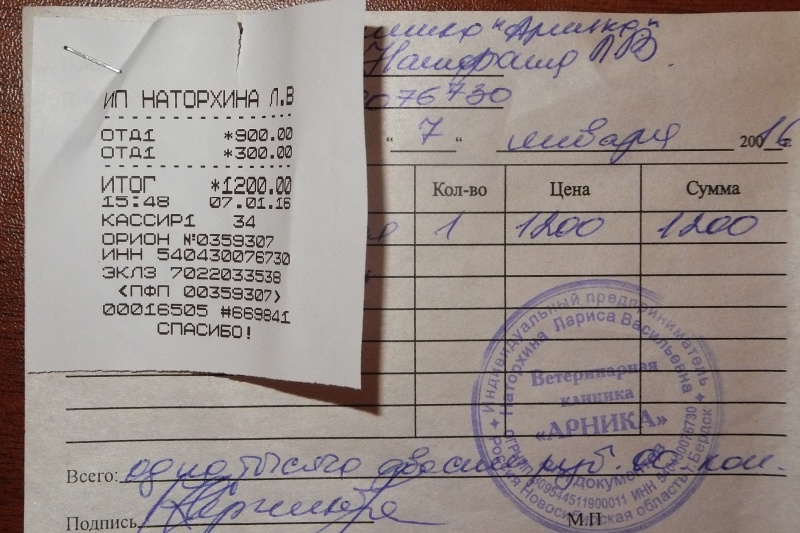 "Арника"
Л.В.
076730
ИП НАТОРХИНА Л.В
ОТД1 *900.00
ОТД1 *300.00
ИТОГ *1200.00
15:48 07.01.16
КАССИР1 34
ОРИОН №0359307
ИНН 540430076730
ЭКЛЗ 7022033538
<ПФП 00359307>
00016505 #669841
СПАСИБО!
"7" января 2016г.
Кол-во Цена Сумма
1 1200 1200
Индивидуальный предприниматель
Наторхина Лариса Васильевна
Ветеринарная
клиника
«АРНИКА»
Новосибирская область г. Бердск
Всего: одна тысяча двести руб. 00 коп.
Подпись
М.П